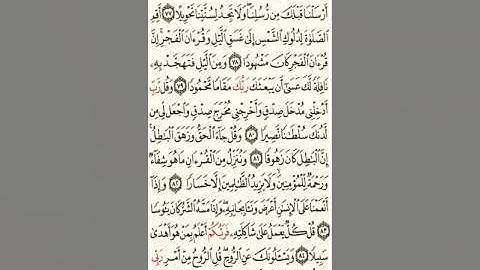 أَرْسَلْنَا قَبْلَكَ مِن رُّسُلِنَا ۖ وَلَا تَجِدُ لِسُنَّتِنَا تَحْوِيلًا ﴿٧٧﴾ أَقِمِ
ٱلصَّلَوٰةَ لِدُلُوكِ ٱلشَّمْسِ إِلَىٰ غَسَقِ ٱلَّيْلِ وَقُرْءَانَ ٱلْفَجْرِ ۖ إِنَّ
قُرْءَانَ ٱلْفَجْرِ كَانَ مَشْهُودًا ﴿٧٨﴾ وَمِنَ ٱلَّيْلِ فَتَهَجَّدْ بِهِۦ
نَافِلَةً لَّكَ عَسَىٰٓ أَن يَبْعَثَكَ رَبُّكَ مَقَامًا مَّحْمُودًا ﴿٧٩﴾ وَقُل رَّبِّ
أَدْخِلْنِى مُدْخَلَ صِدْقٍ وَأَخْرِجْنِى مُخْرَجَ صِدْقٍ وَٱجْعَل لِّى مِن
لَّدُنكَ سُلْطَٰنًا نَّصِيرًا ﴿٨٠﴾ وَقُلْ جَآءَ ٱلْحَقُّ وَزَهَقَ ٱلْبَٰطِلُ ۚ
إِنَّ ٱلْبَٰطِلَ كَانَ زَهُوقًا ﴿٨١﴾ وَنُنَزِّلُ مِنَ ٱلْقُرْءَانِ مَا هُوَ شِفَآءٌ
وَرَحْمَةٌ لِّلْمُؤْمِنِينَ ۙ وَلَا يَزِيدُ ٱلظَّٰلِمِينَ إِلَّا خَسَارًا ﴿٨٢﴾ وَإِذَآ
أَنْعَمْنَا عَلَى ٱلْإِنسَٰنِ أَعْرَضَ وَنَـَٔا بِجَانِبِهِۦ ۖ وَإِذَا مَسَّهُ ٱلشَّرُّ كَانَ يَـُٔوسًا
﴿٨٣﴾ قُلْ كُلٌّ يَعْمَلُ عَلَىٰ شَاكِلَتِهِۦ فَرَبُّكُمْ أَعْلَمُ بِمَنْ هُوَ أَهْدَىٰ
سَبِيلًا ﴿٨٤﴾ وَيَسْـَٔلُونَكَ عَنِ ٱلرُّوحِ ۖ قُلِ ٱلرُّوحُ مِنْ أَمْرِ رَبِّى